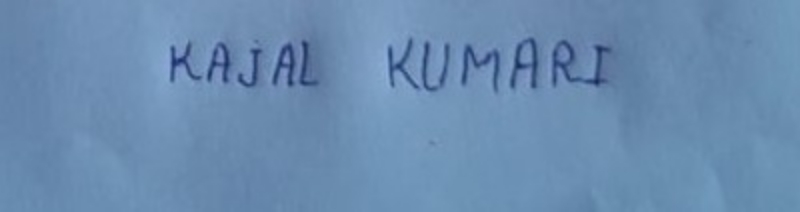 KAJAL KUMARI